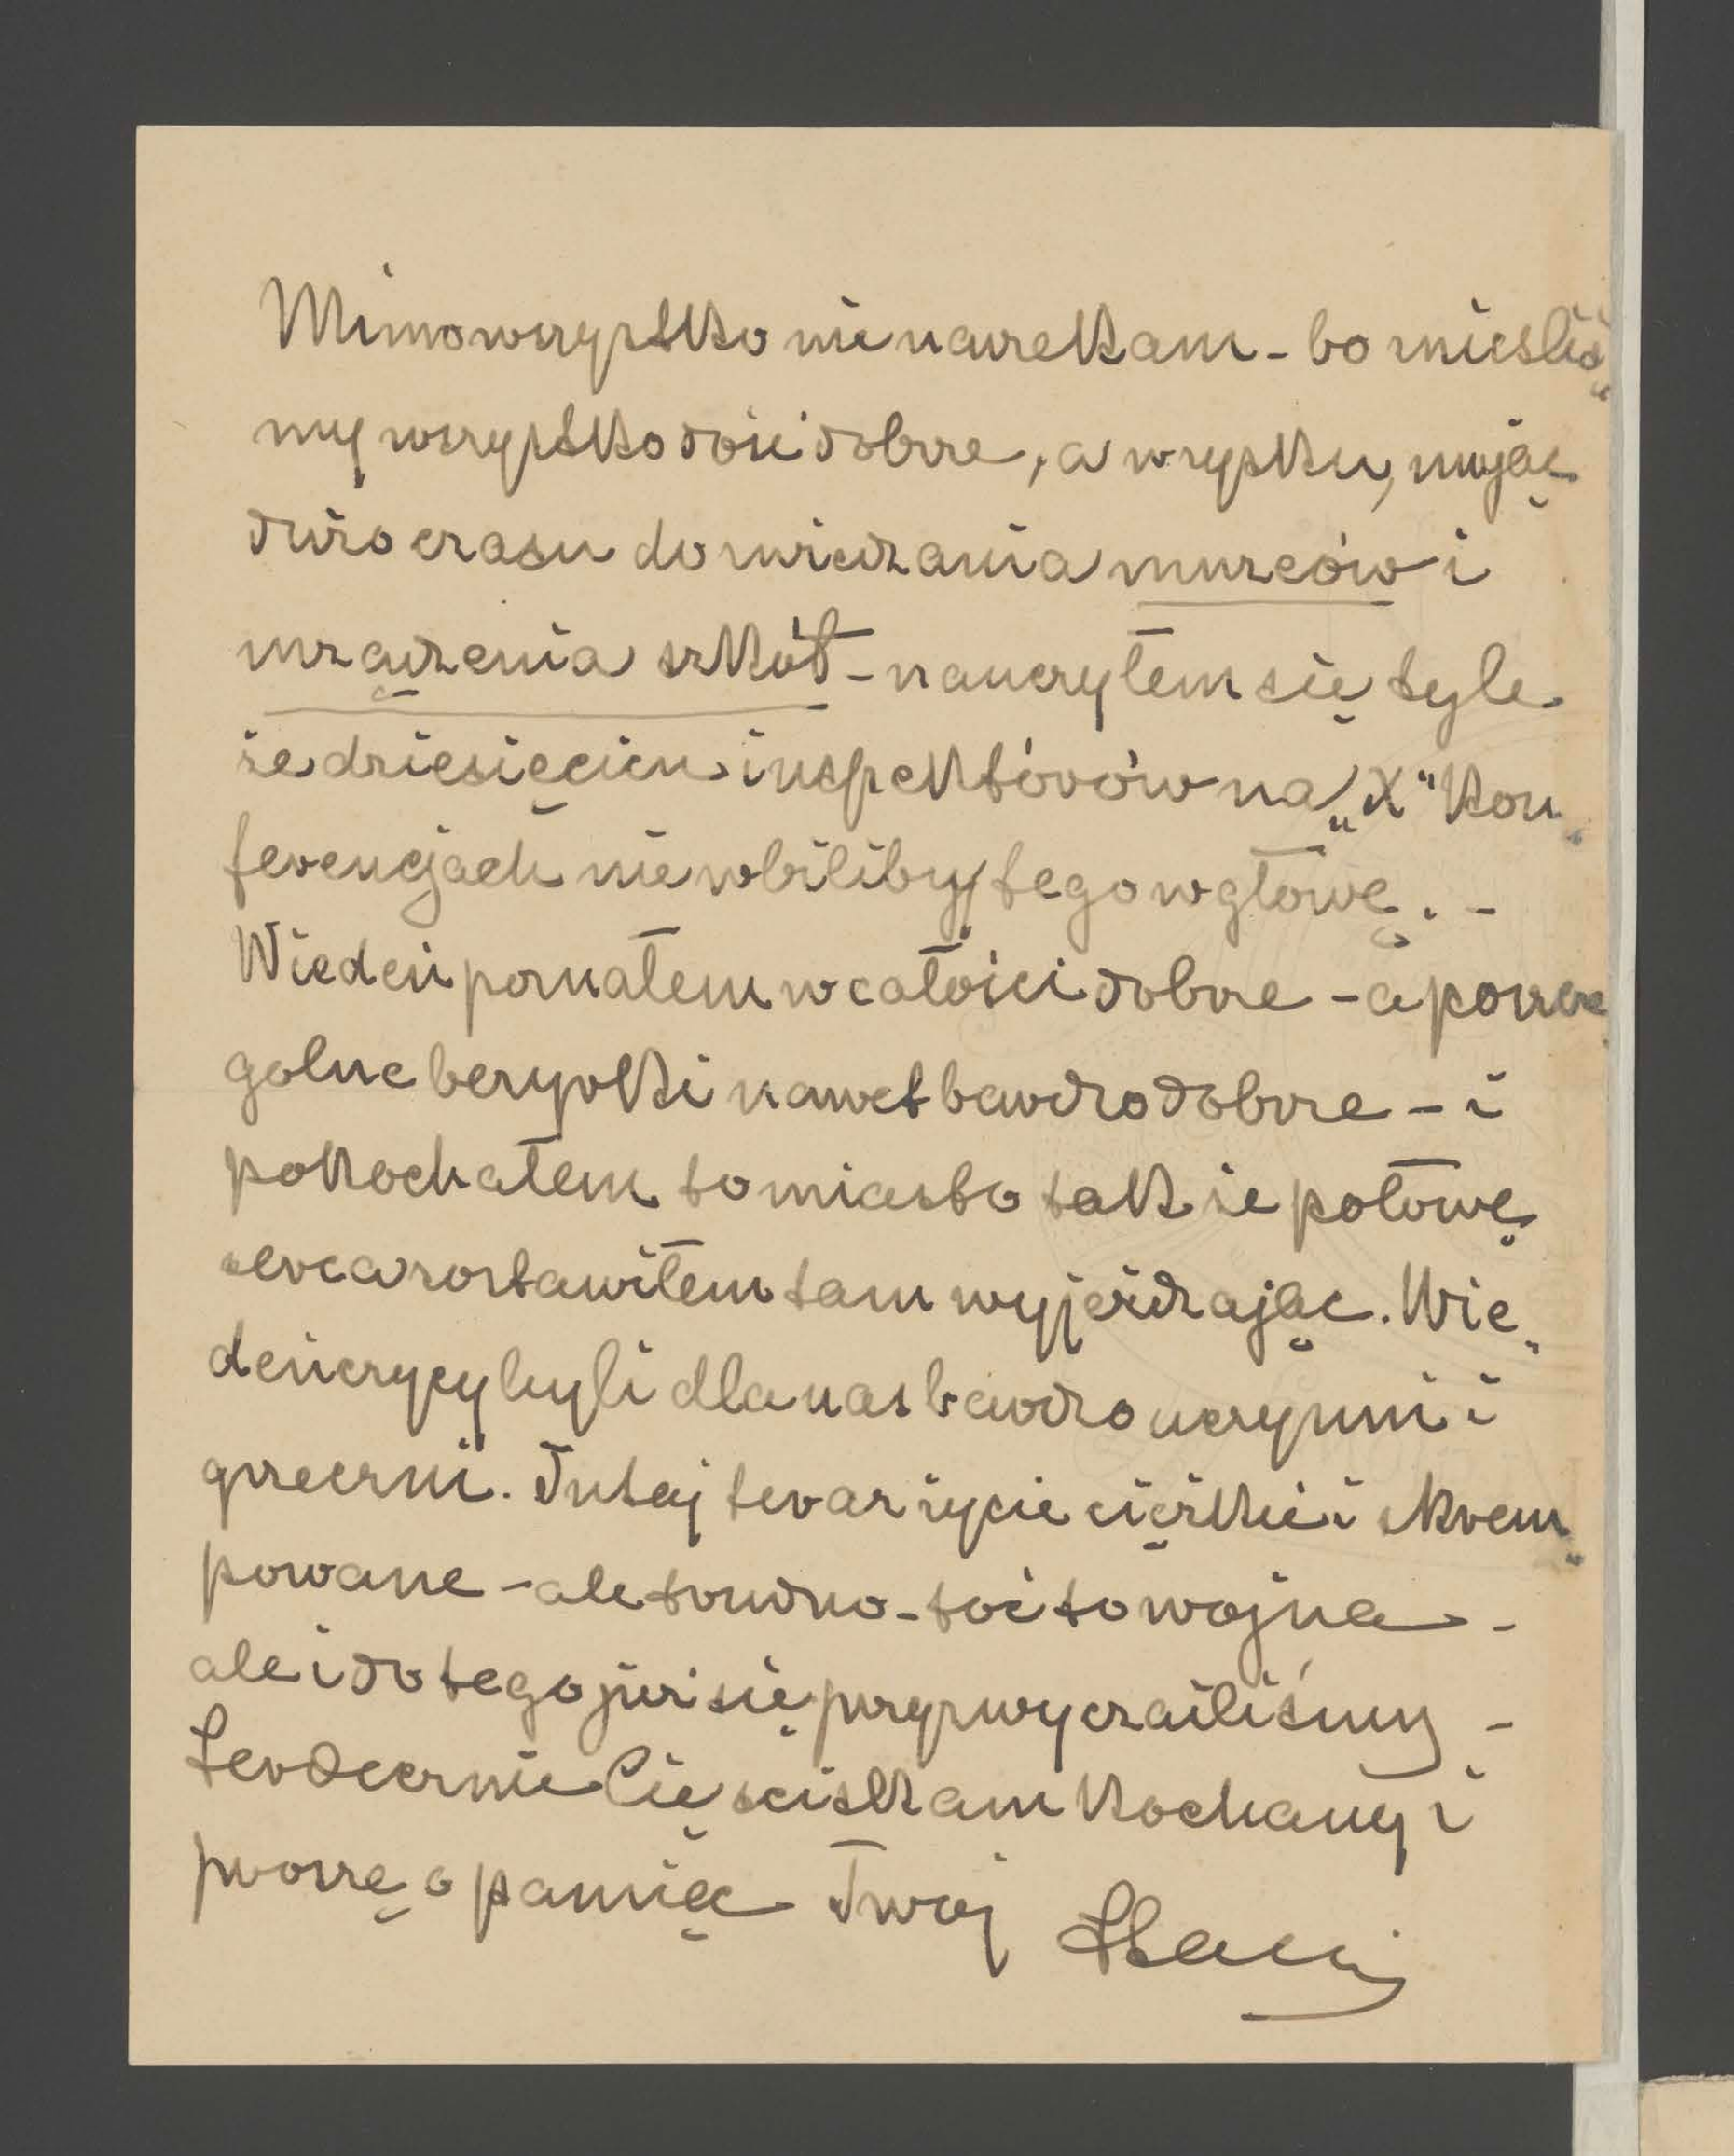 Mimo wszystko nie narzekam - bo mieliś„
my wszystko dość dobrze, a w zysku, mając
dużo czasu do zwiedzania muzeów i
urządzenia szkół - nauczyłem się tyle
że dziesięciu inspektórów na „X" kon„
ferencjach nie wbiliby tego w głowę. -
Wiedeń poznałem w całości dobrze - a poszcze„
golne bezyrki nawet bardzo dobrze - i
pokochałem to miasto tak że połowę
serca zostawiłem tam wyjeżdzając. Wie„
deńczycy byli dla nas bardzo uczynni i
grzeczni. Tutaj teraz życie ciężkie i skrem„
powane - ale trudno - toć to wojna -
ale i do tego już się przyzwyczailiśmy -
Serdecznie Cię sciskam kochany i
proszę o pamięc Twój Stach